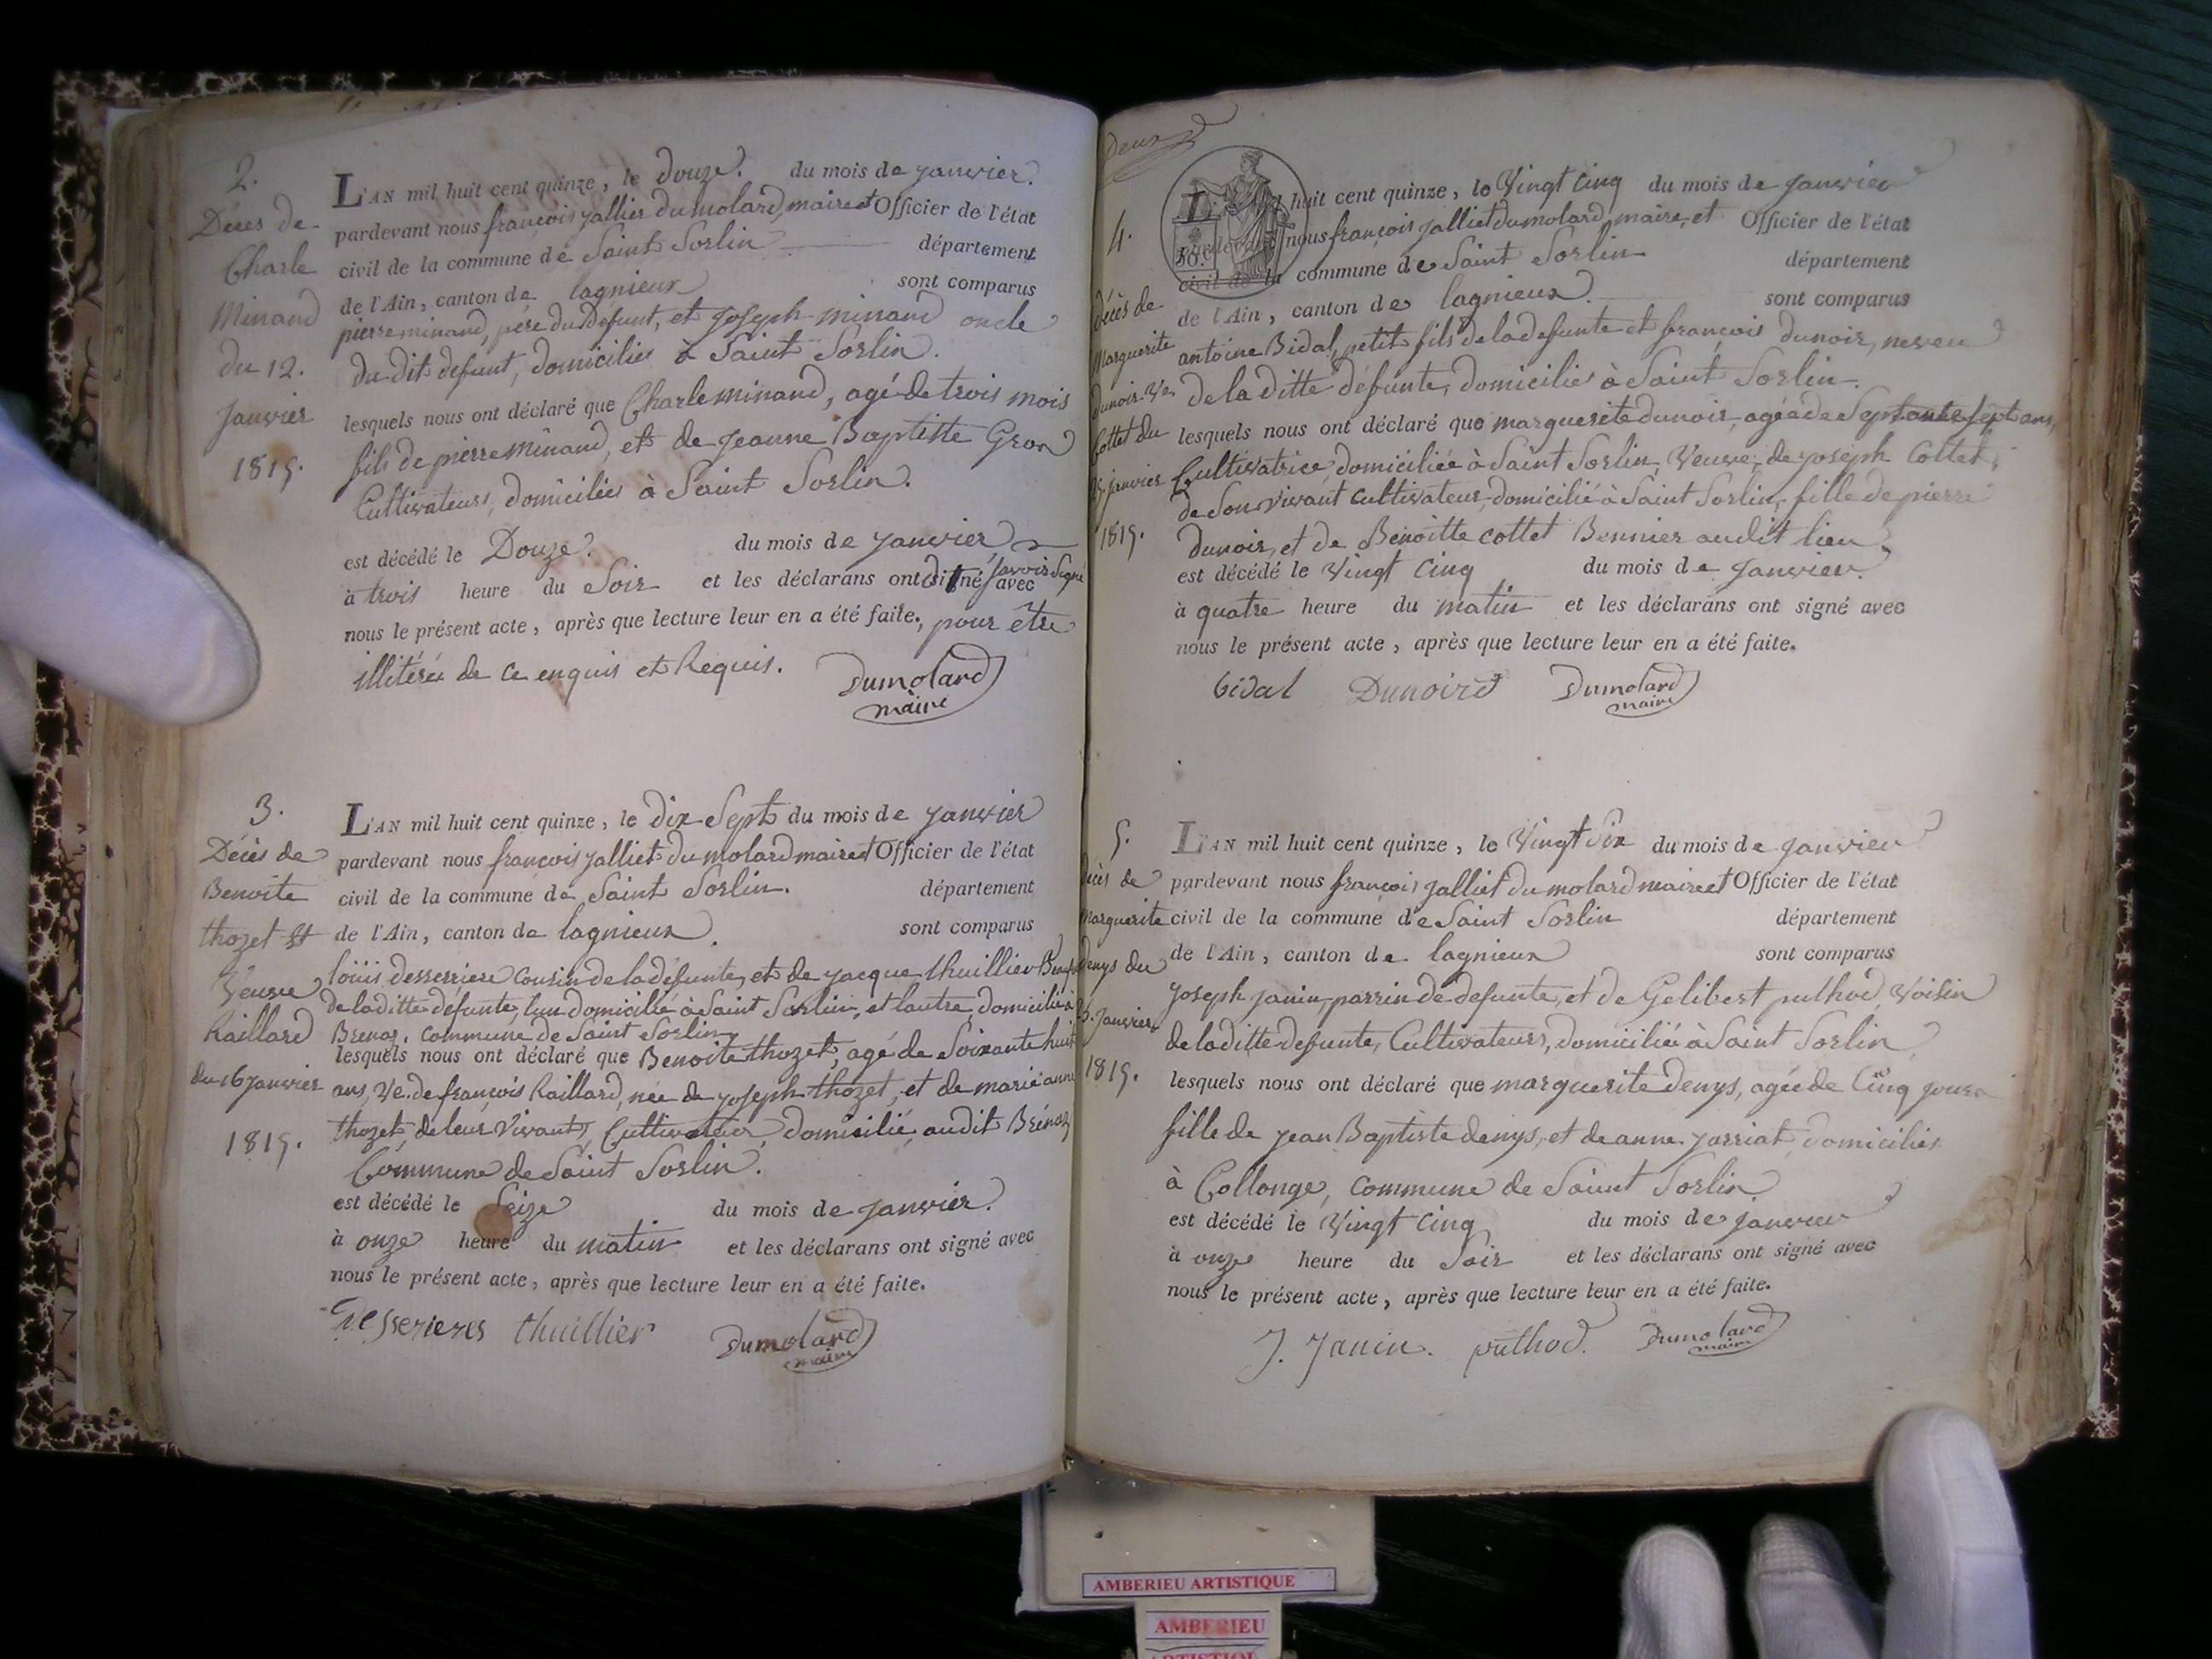 2.
Décès de
Charle
Minand
du 12.
Janvier
1815.
L'AN mil huit cent quinze, le Douze. du mois de janvier.
pardevant nous françois jalliet dumolard, maire et Officier de l'état
civil de la commune de Saint Sorlin département
de l'Ain, canton de lagnieux sont comparus
pierre minand, père du Défunt, et Joseph minand oncle
du dit defunt, domiciliés à Saint Sorlin.
lesquels nous ont déclaré que Charle minand, agé de trois mois
fils de pierre Minand, et de Jeanne Baptiste Gron
Cultivateurs, domiciliés à Saint Sorlin.
est décédé le Douze. du mois de janvier
à trois heure du Soir et les déclarans ont signé avec
nous le présent acte, après que lecture leur en a été faite., pour être
illitérés de ce enquis et Requis.
Dumolard
maire
3.
Décès de
Benoite
thozet
Veuve
Raillard
du 16 janvier
1815.
L'AN mil huit cent quinze, le Dix Sept du mois de janvier
pardevant nous françois jalliet dumolard maire et Officier de l'état
civil de la commune de Saint Sorlin. département
de l'Ain, canton de lagnieux. sont comparus
loüis desserriere Cousin de la défunte, et de jacque thuillier
de la ditte défunte, l'un domicilié à Saint Sorlin, et lautre domicilié à
Brenaz, Commune de Saint Sorlin
lesquels nous ont déclaré que Benoite thozet, agé de Soixante huit
ans, Ve. de françois Raillard, née de joseph thozet, et de marie anne
thozet, de leur Vivant, Cultivateur, domicilié audit Brénaz
Commune de Saint Sorlin.
est décédé le Seize du mois de janvier.
à onze heure du matin et les déclarans ont signé avec
nous le présent acte, après que lecture leur en a été faite.
Desserieres thuillier Dumolard
maire
Deux
4.
décès de
Marguerite
dunoir Ve.
Cottet du
25. janvier
1815.
L'AN mil huit cent quinze, le Vingt Cinq du mois de janvier
pardevant nous françois jalliet dumolard, maire, et Officier de l'état
civil de la commune de Saint Sorlin département
de l'Ain, canton de lagnieux. sont comparus
antoine Bidal, petit fils de la defunte et françois dunoir, neveu
de la ditte défunte, domiciliés à Saint Sorlin.
lesquels nous ont déclaré que marguerite dunoir, agée de Septante Sept ans,
Cultivatrice domiciliée à Saint Sorlin, Veuve, de joseph Cottet,
de Son Vivant Cultivateur, domicilié à Saint Sorlin, fille de pierre
Dunoir, et de Benoitte cottet Bennier audit lieu,
est décédé le Vingt Cinq du mois de janvier.
à quatre heure du matin et les déclarans ont signé avec
nous le présent acte, après que lecture leur en a été faite.
bidal Dunoird Dumolard
maire
5.
décès de
Marguerite
denys du
25. janvier
1815.
L'AN mil huit cent quinze, le Vingt Six du mois de janvier
pardevant nous françois jalliet dumolard maire et Officier de l'état
civil de la commune de Saint Sorlin département
de l'Ain, canton de lagnieux sont comparus
joseph janin, parrin de defunte, et de Gelibert puthod, Voisin
de la ditte defunte, Cultivateurs, domiciliés à Saint Sorlin
lesquels nous ont déclaré que marguerite Denys, agée de Cinq jours
fille de jean Baptiste denys, et de anne jarriat domiciliés
à Collonge, Commune de Saint Sorlin
est décédé le Vingt Cinq du mois de janvier
à onze heure du Soir et les déclarans ont signé avec
nous le présent acte, après que lecture leur en a été faite.
J. Janin. puthod. Dumolard
maire
AMBERIEU ARTISTIQUE
AMBERIEU
ARTISTIQUE